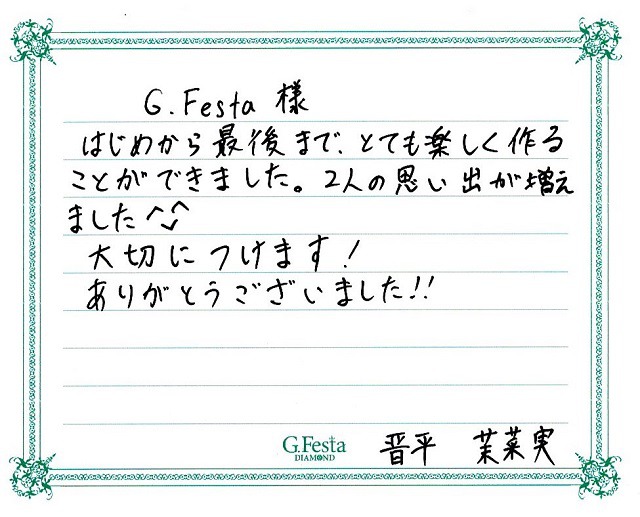 G.Festa 様
はじめから最後まで、とても楽しく作る
ことができました。2人の思い出が増え
ました^^
大切につけます!
ありがとうございました!!
G.Festa 晋平 茉菜実
DIAMOND